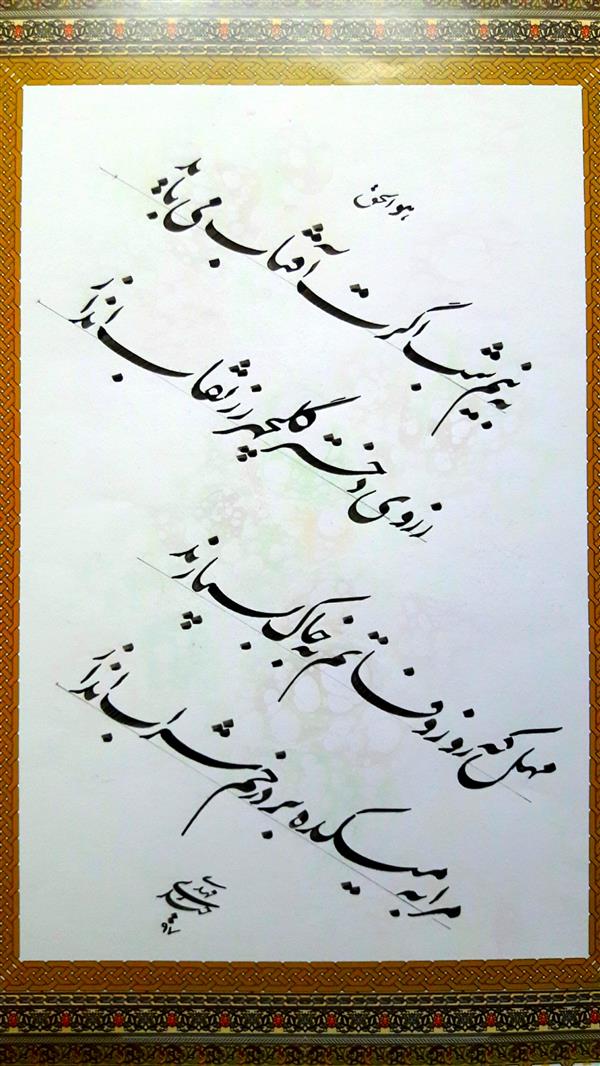 هوالحق
به نیم شب اگرت آفتاب می باید
ز روی دختر گلچهر رز نقاب انداز
مهل که روز وفاتم به خاک بسپارند
مرا به میکده بر در خم شراب انداز
مهدی
۹۷